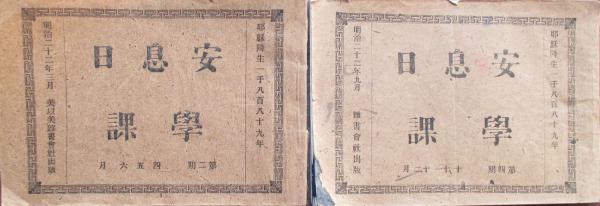 耶穌降生一千八百八十九年
安息日
學課
第二期 四五六月
明治二十二年三月 美以美雜書會社出版
耶穌降生一千八百八十九年
安息日
學課
第四期 十十一十二月
明治二十二年九月 雜書會社出版